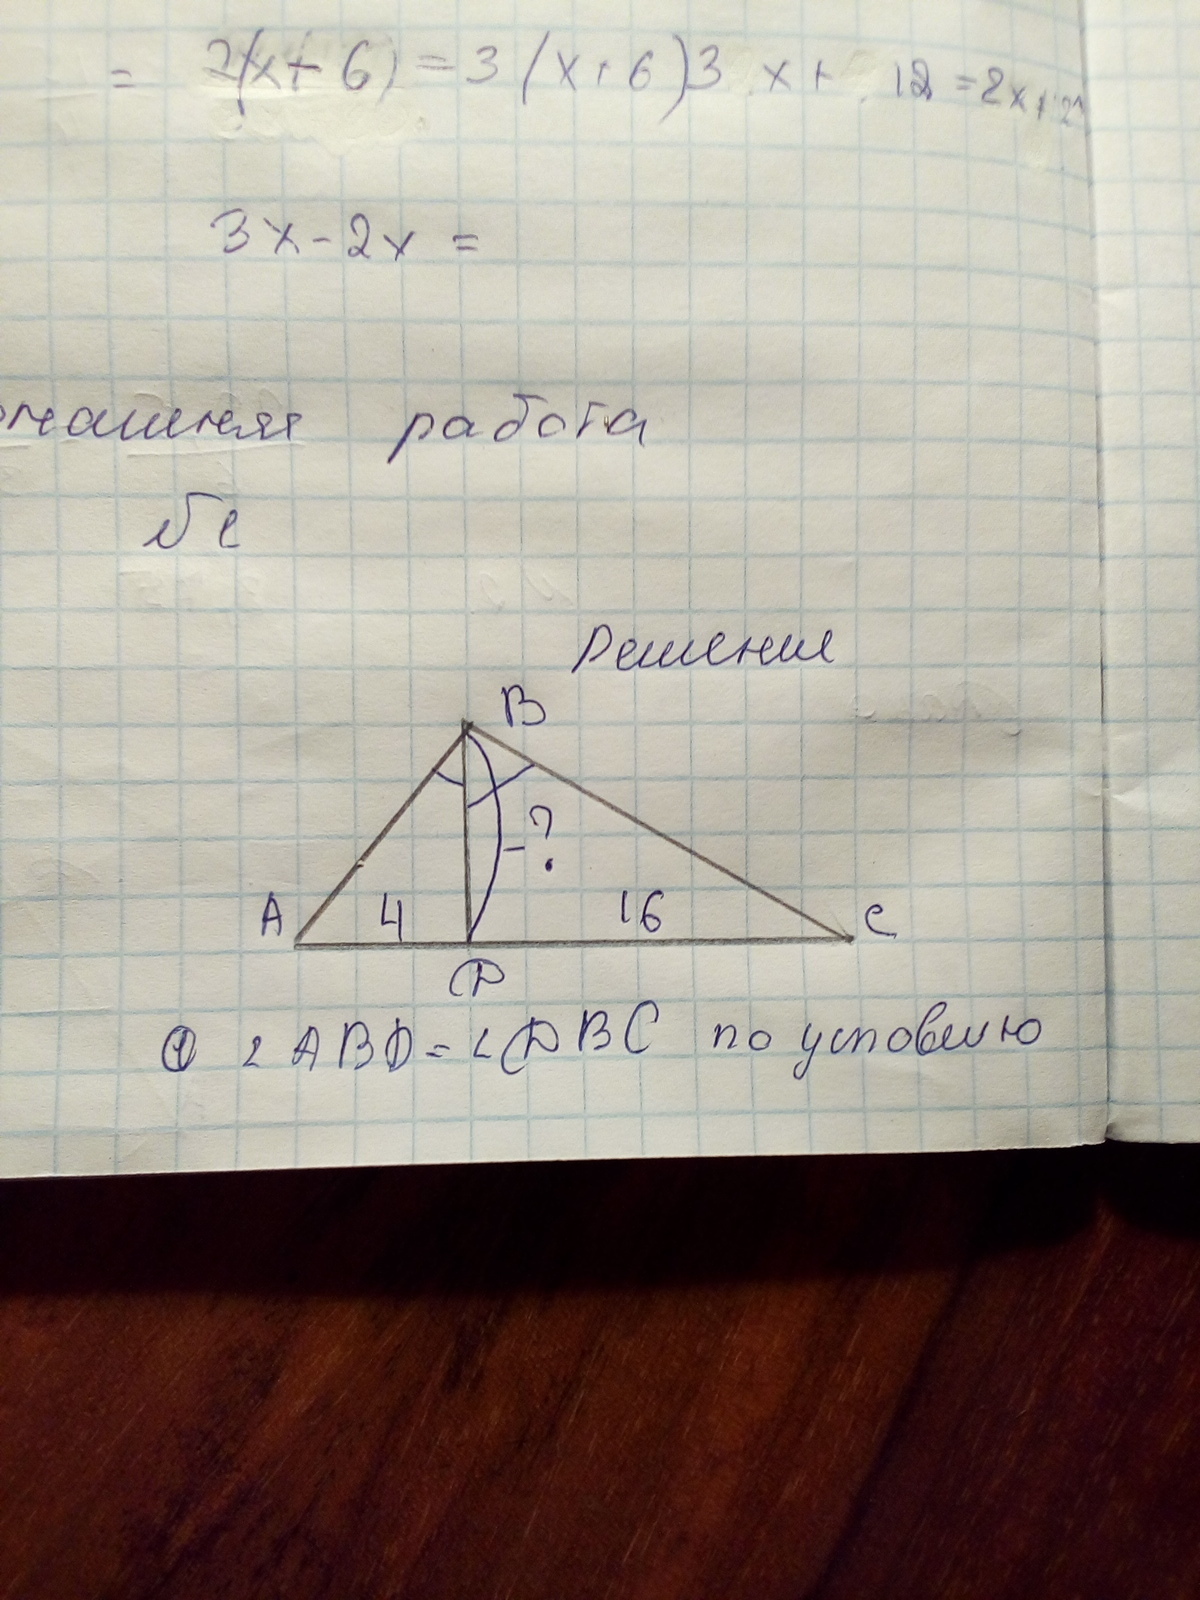 = 2(x+6)=3(x+6)3 x+ 12 =2x+
3x-2x =
омашняя работа
№
Решение
B
-?
A 4 16 C
D
① ∠ABD=∠DBC по условию